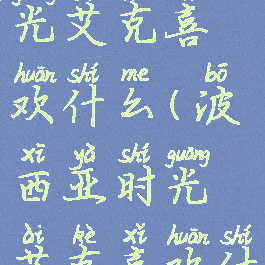 光艾克喜
huān shí me bō
欢什么(波
xī yà shí guāng
西亚时光
ài kè xǐ huān shí
艾克喜欢什